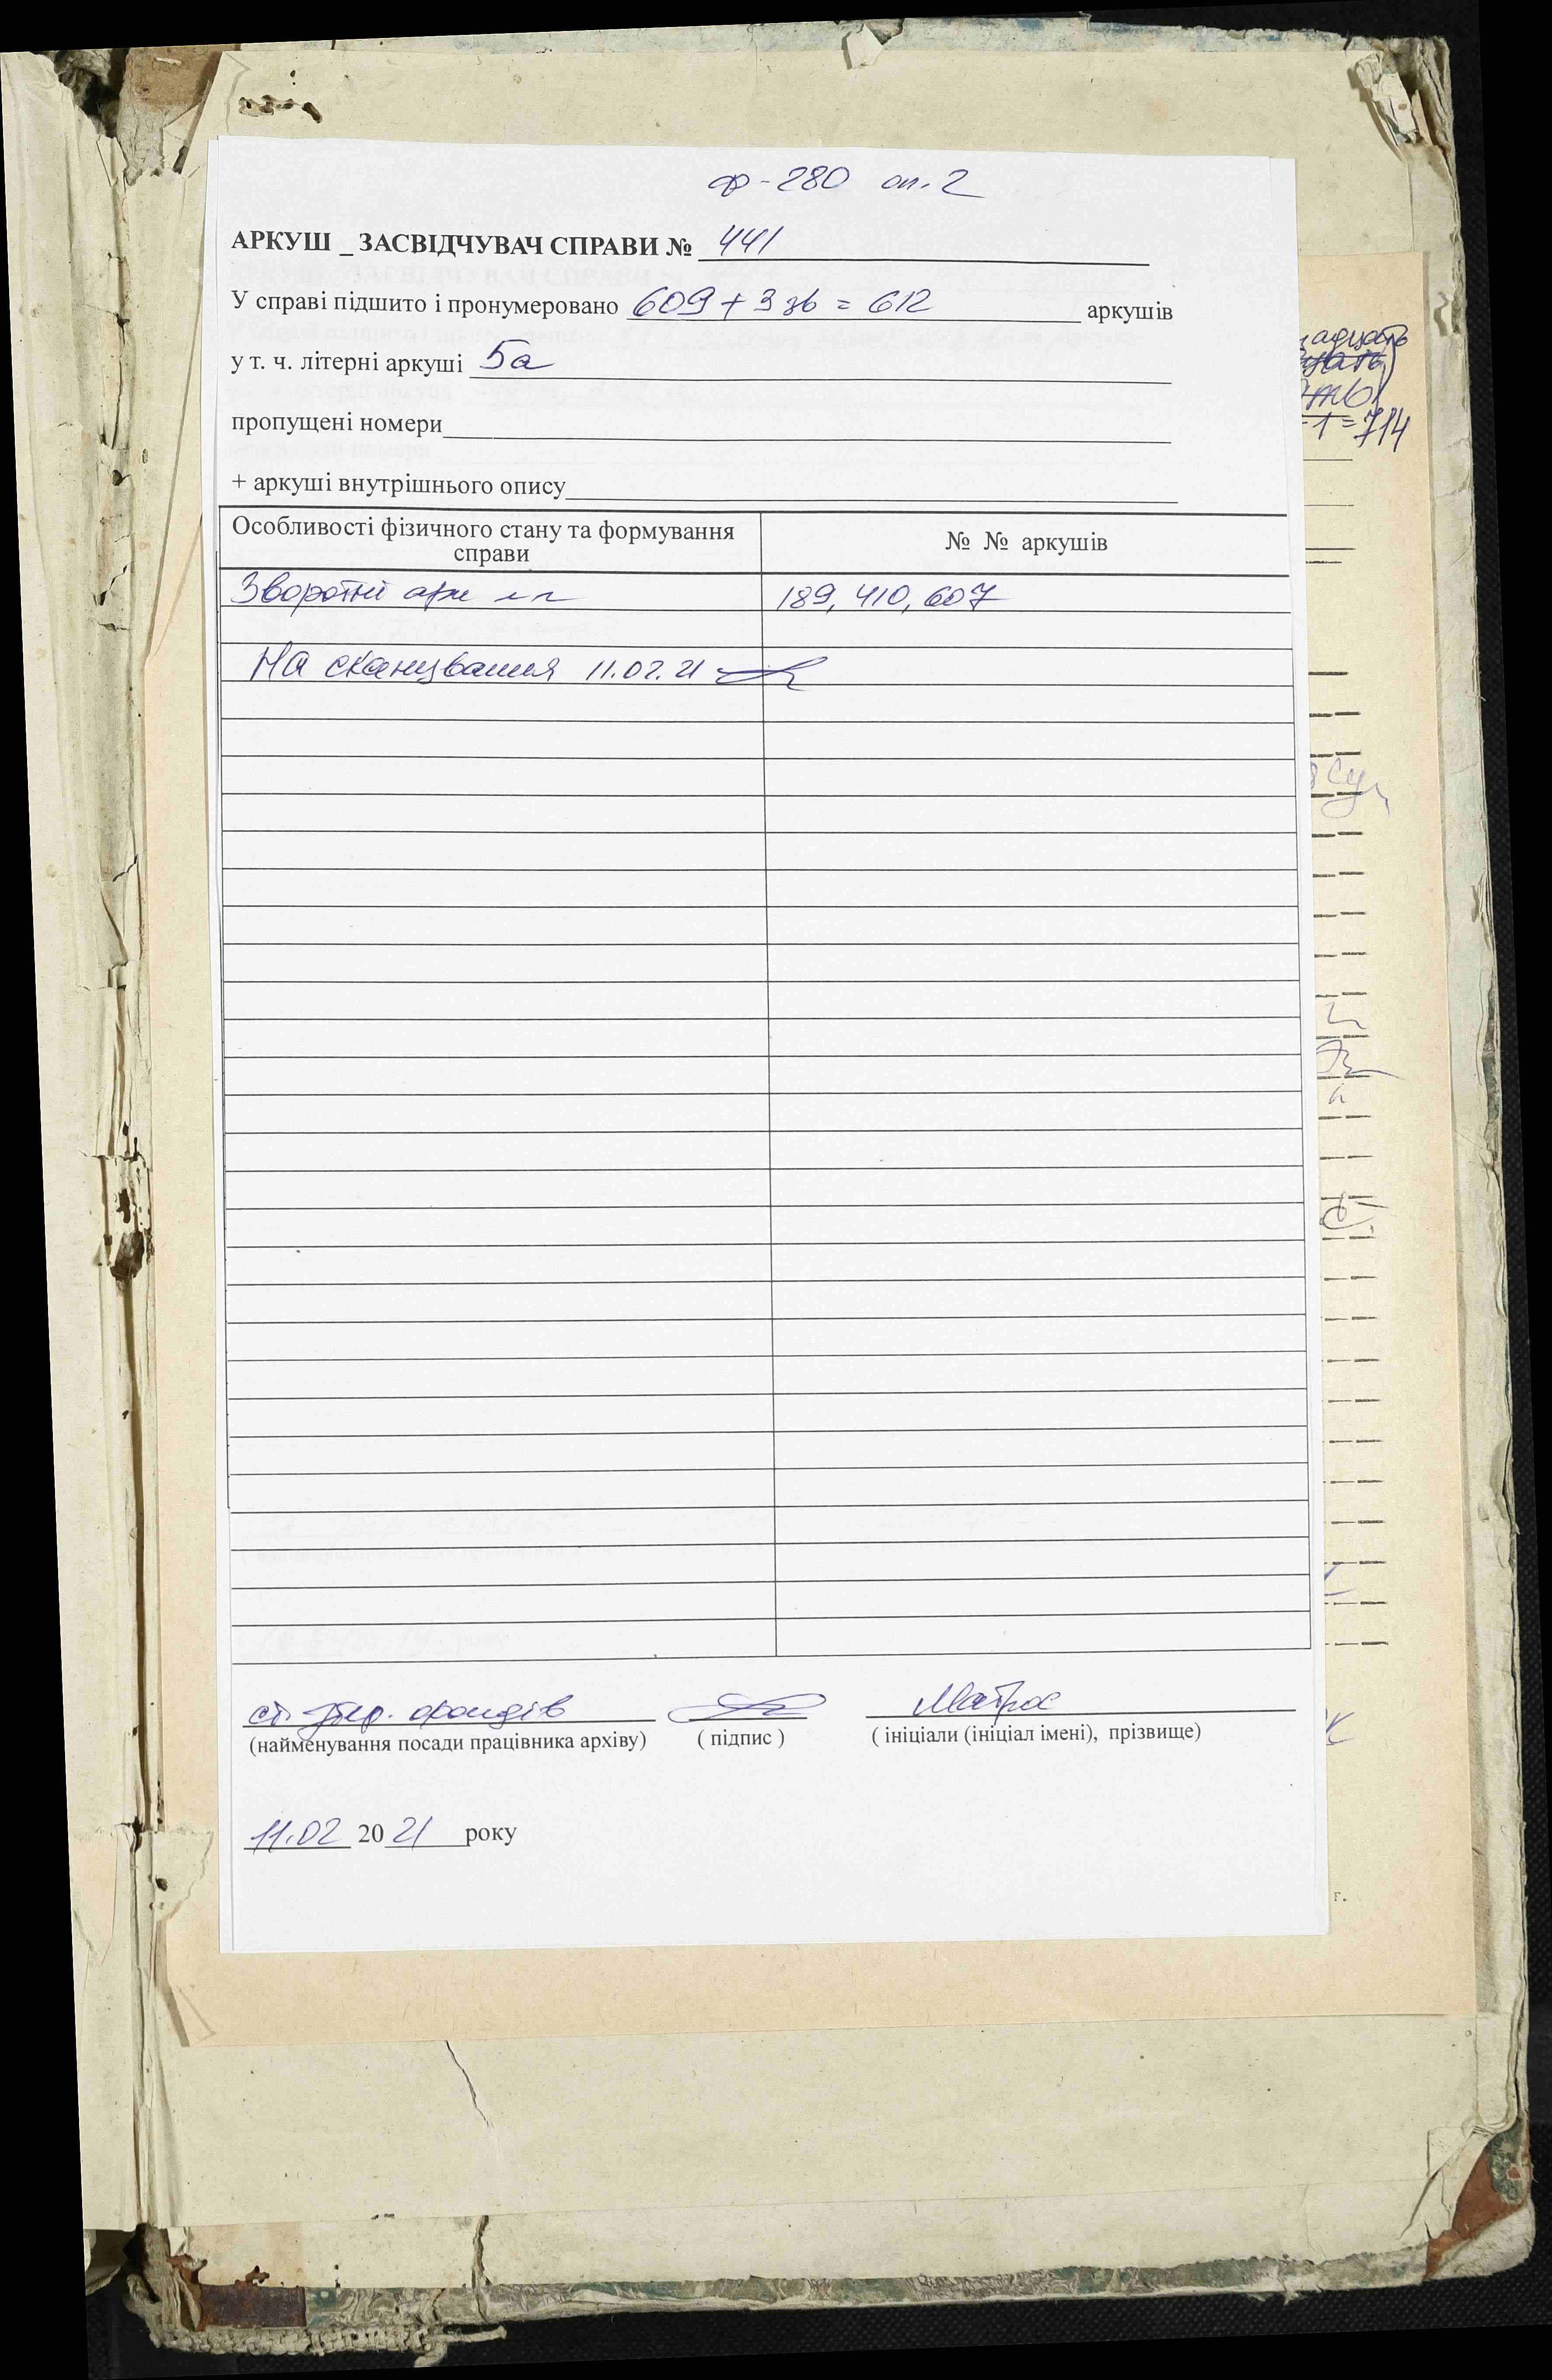 ф-280 оп. 2
АРКУШ _ ЗАСВІДЧУВАЧ СПРАВИ № 441
У справі підшито і пронумеровано 609 + 3 зв = 612 аркушів
у т. ч. літерні аркуші 5а
пропущені номери
+ аркуші внутрішнього опису
Особливості фізичного стану та формування справи
№ № аркушів
Зворотні арк 189, 410, 607
На сканування 11.02.21
ст. фондів Матрос
(найменування посади працівника архіву) ( підпис ) ( ініціали (ініціал імені), прізвище)
11.02 2021 року
адцать
1 = 714
г.